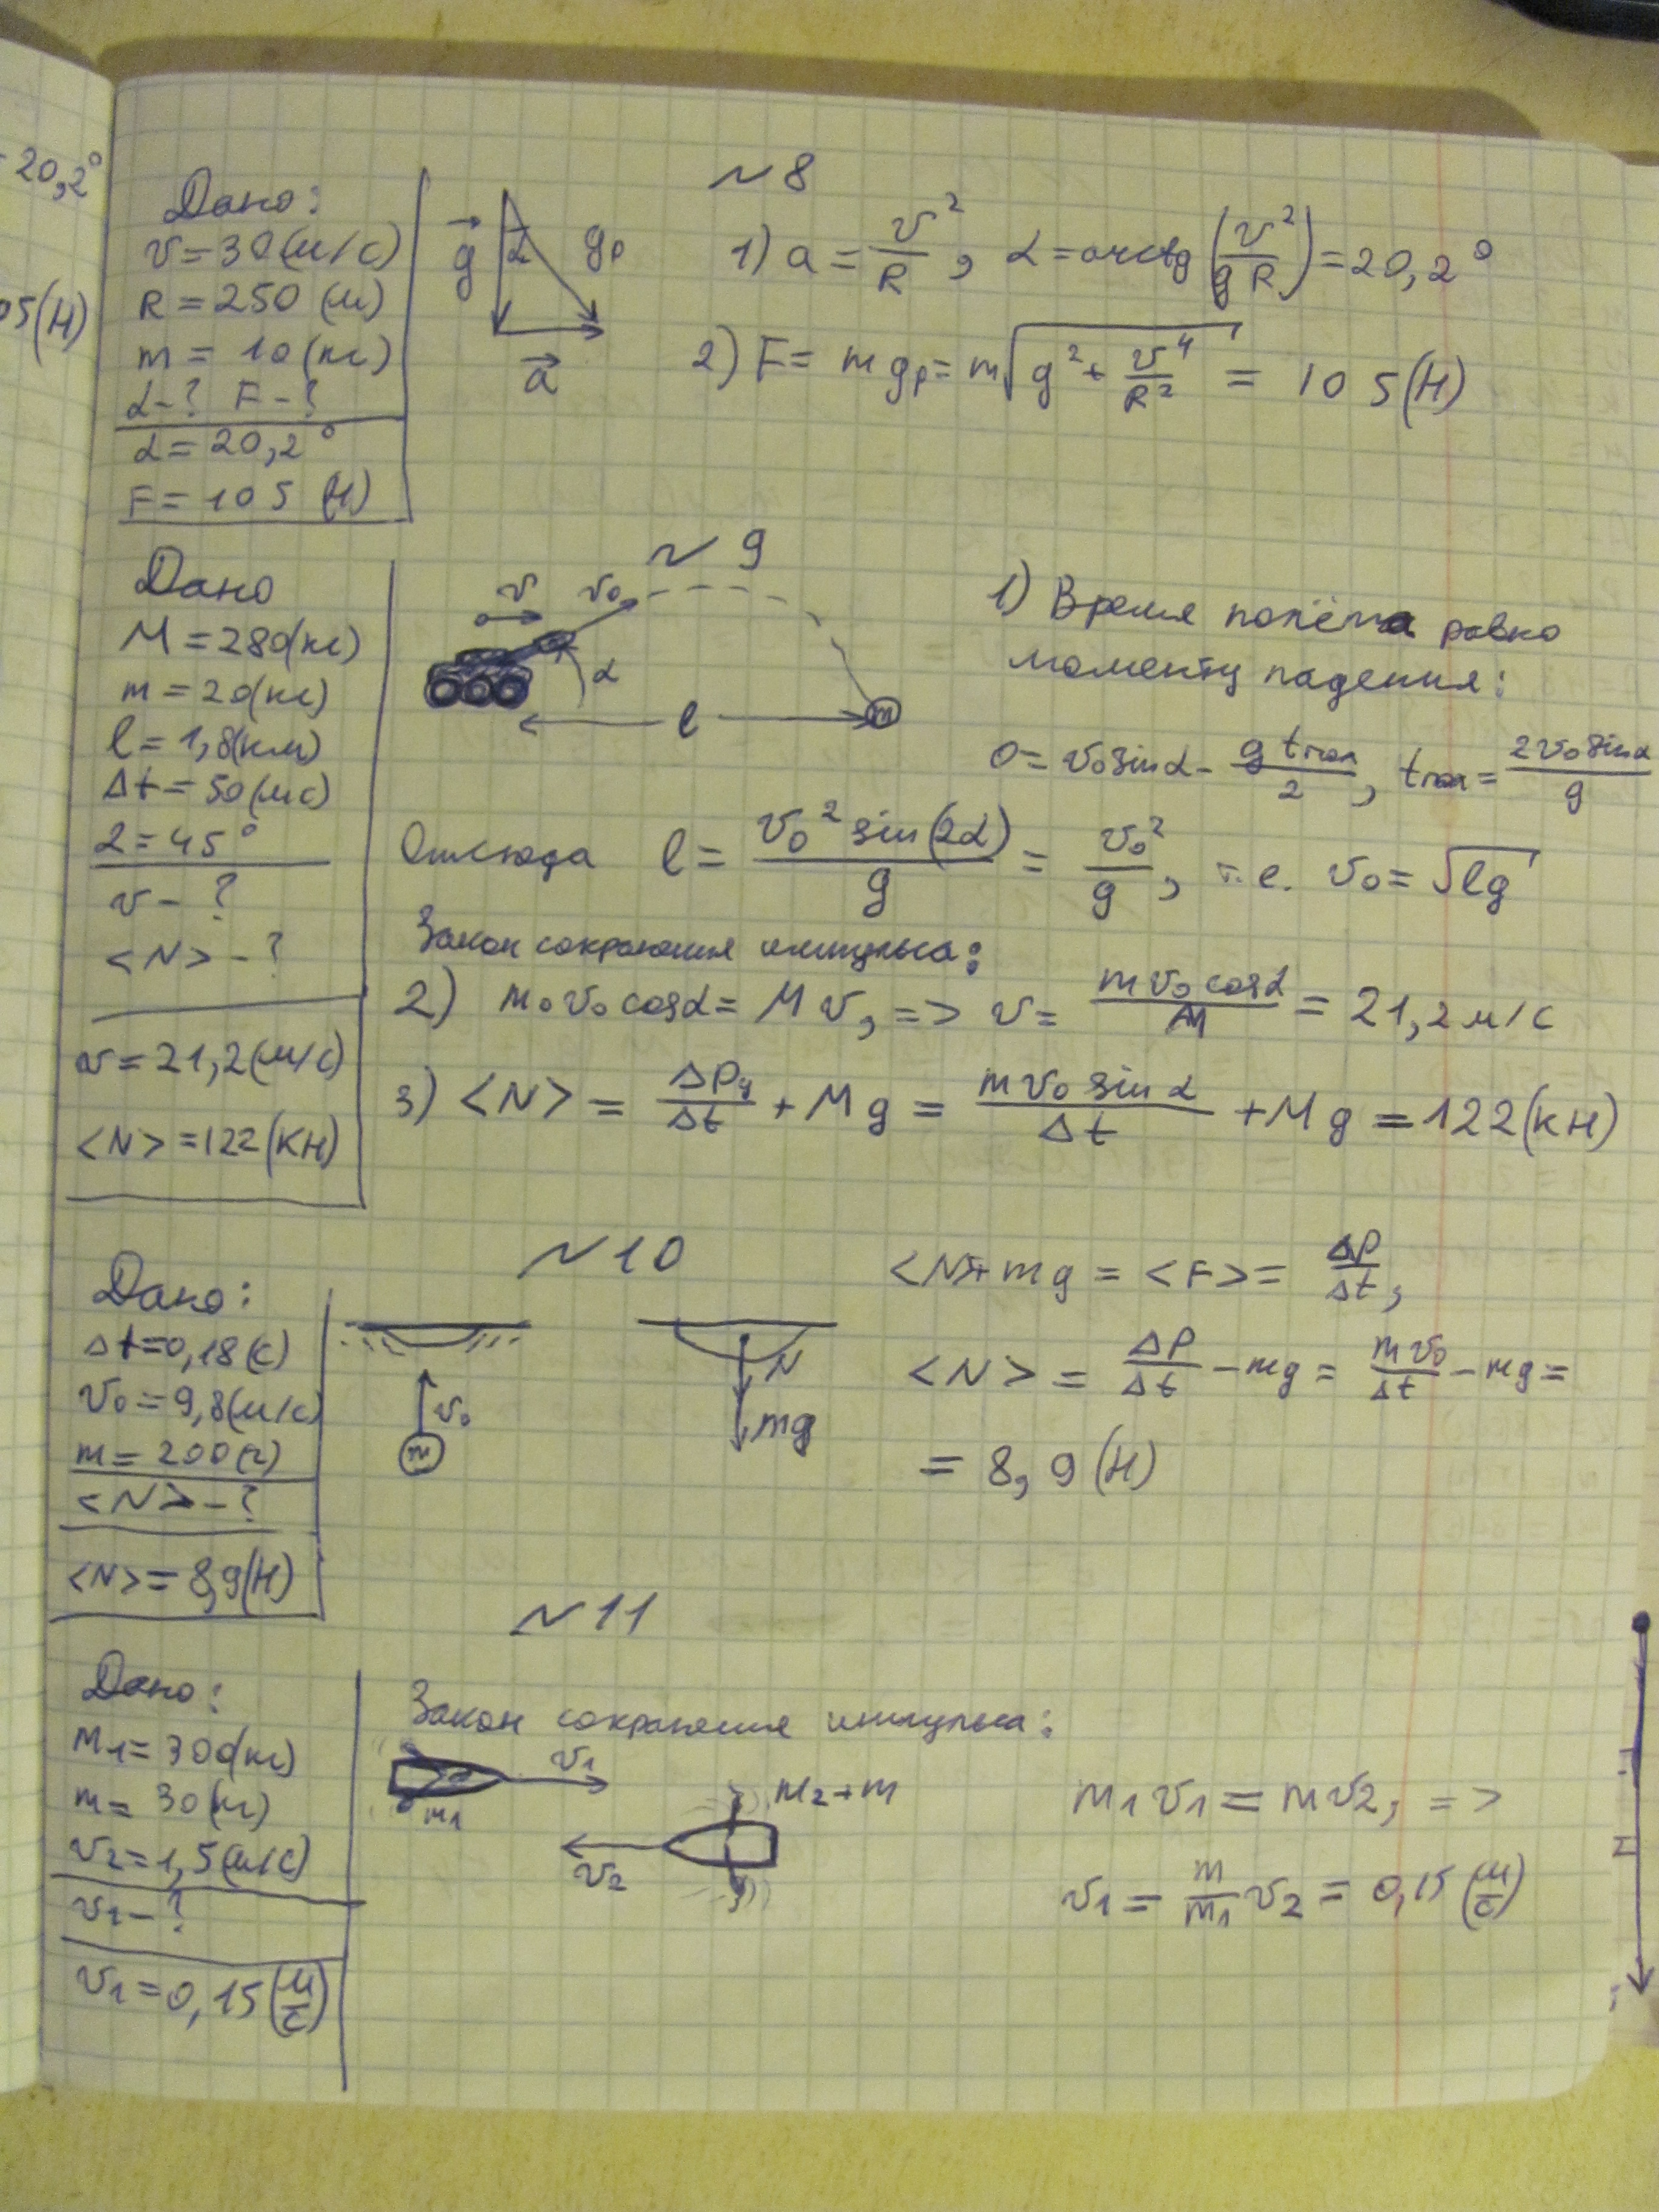 20,2°
05(Н)
№8
Дано:
v=30(м/с)
R=250 (м)
m=10(кг)
α-? F-?
α=20,2°
F=105 (Н)
g α gρ
a
1) a=v²/R, α=arctg(v²/gR)=20,2°
2) F=mgρ=m√(g²+v⁴/R²)=105(Н)
№9
Дано
M=280(кг)
m=20(кг)
l=1,8(км)
Δt=50(мс)
α=45°
v-?
<N>-?
v=21,2(м/с)
<N>=122(кН)
v v₀
α
l m
1) Время полёта равно
моменту падения:
0=v₀sinα-gtпол/2, tпол=2v₀sinα/g
Отсюда l=v₀²sin(2α)/g=v₀²/g, т.е. v₀=√lg
Закон сохранения импульса:
2) m₀v₀cosα=Mv, => v=mv₀cosα/M=21,2м/с
3) <N>=ΔPy/Δt+Mg=mv₀sinα/Δt+Mg=122(кН)
№10
Дано:
Δt=0,18(с)
v₀=9,8(м/с)
m=200(г)
<N>-?
<N>=8,9(Н)
v₀
m
N
mg
<N>+mg=<F>=ΔP/Δt,
<N>=ΔP/Δt-mg=mv₀/Δt-mg=
=8,9(Н)
№11
Дано:
m₁=300(кг)
m=30(кг)
v₂=1,5(м/с)
v₁-?
v₁=0,15(м/с)
Закон сохранения импульса:
v₁
m₁
m₂+m
v₂
m₁v₁=mv₂, =>
v₁=m/m₁ v₂=0,15(м/с)